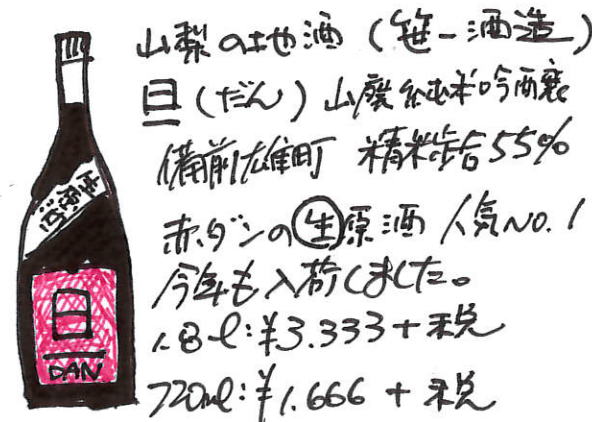 山梨の地酒 (笹一酒造)
旦 (だん) 山廃純米吟醸
備前雄町 精米歩合55%
赤ダンの生原酒 人気No.1
今年も入荷しました。
1.8ℓ:¥3.333+税
720mℓ:¥1.666 +税
生原酒
旦
DAN